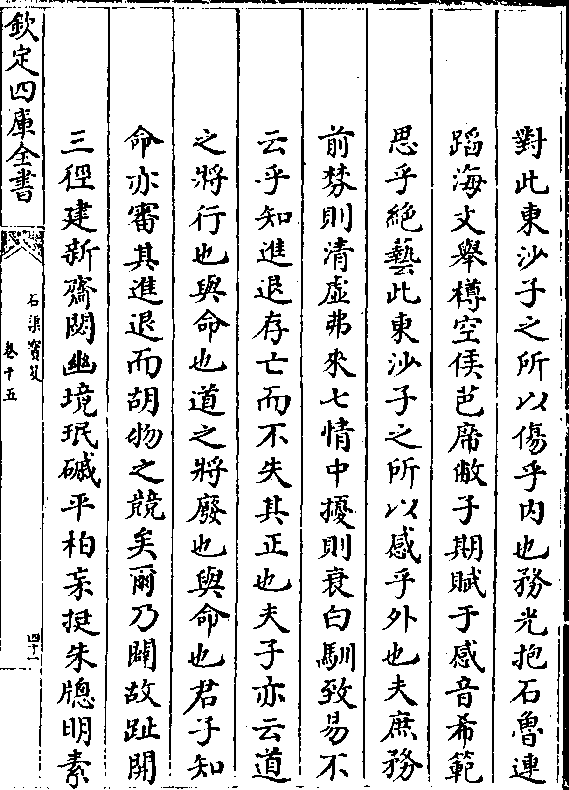 對此東沙子之所以傷乎内也務光抱石魯連
蹈海文舉樽空侯芭席敝子期賦于感音希範
思乎絶藝此東沙子之所以感乎外也夫庶務
前棼則清虚弗來七情中擾則衰白馴致易不
云乎知進退存亡而不失其正也夫子亦云道
之將行也與命也道之將廢也與命也君子知
命亦審其進退而胡物之競矣爾乃闢故趾開
三徑建新齋閟幽境珉碱平柏亲挺朱牕明素
欽定四庫全書
石渠寳笈
卷十五
四十一